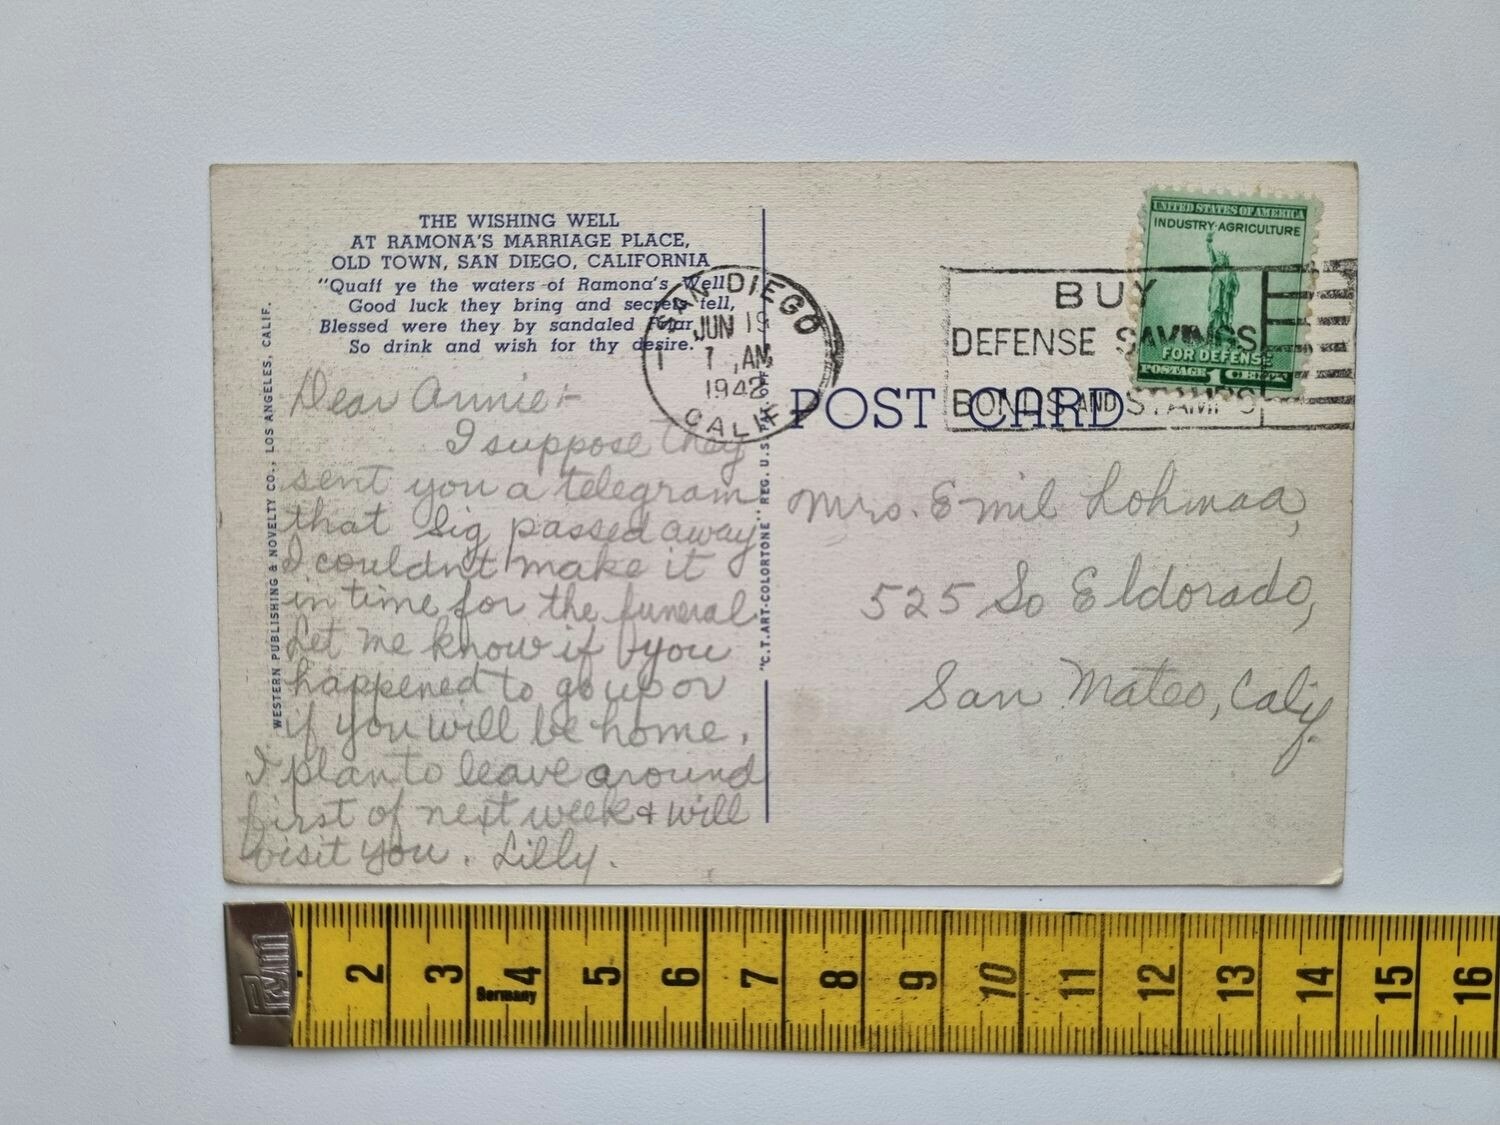 THE WISHING WELL
AT RAMONA'S MARRIAGE PLACE,
OLD TOWN, SAN DIEGO, CALIFORNIA
"Quaff ye the waters of Ramona's Well,
Good luck they bring and secrets tell,
Blessed were they by sandaled Friar,
So drink and wish for thy desire."
WESTERN PUBLISHING & NOVELTY CO., LOS ANGELES, CALIF.
Dear Annie:-
I suppose they
sent you a telegram
that Sig passed away
I couldn't make it
in time for the funeral
Let me know if you
happened to go up or
if you will be home.
I plan to leave around
first of next week & will
visit you. Lilly.
"C.T. ART-COLORTONE" REG. U.S. PAT. OFF.
SAN DIEGO
JUN 19
7 AM
1942
CALIF.
1
BUY
DEFENSE SAVINGS
BONDS AND STAMPS
UNITED STATES OF AMERICA
INDUSTRY·AGRICULTURE
FOR DEFENSE
POSTAGE 1 CENT
POST CARD
Mrs. Emil
525 So Eldorado,
San Mateo, Calif.
PRYM
2 3 4 5 6 7 8 9 10 11 12 13 14 15 16
Germany